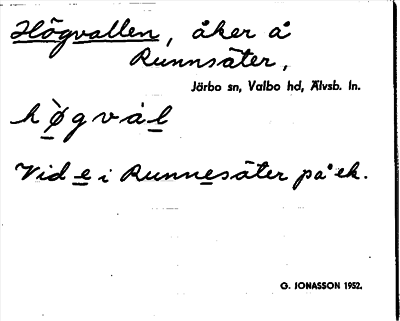 Högvallen, åker å
Runnsäter,
Järbo sn, Valbo hd, Älvsb. ln.
hø̀gvàl
Vid e i Runnesäter på ek.
G. JONASSON 1952.